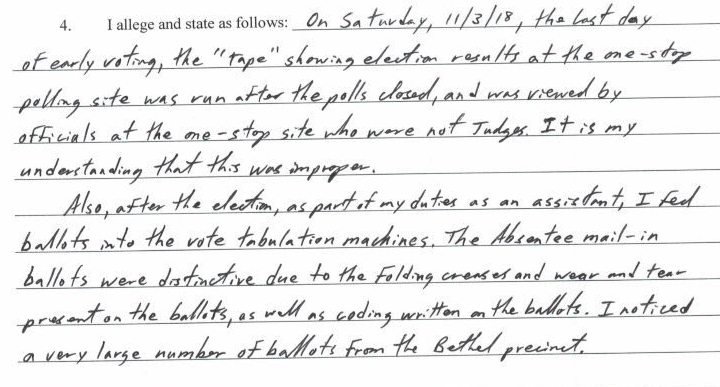 4. I allege and state as follows: On Saturday, 11/3/18, the last day
of early voting, the "tape" showing election results at the one-stop
polling site was run after the polls closed, and was viewed by
officials at the one-stop site who were not Judges. It is my
understanding that this was improper.
Also, after the election, as part of my duties as an assistant, I fed
ballots into the vote tabulation machines. The Absentee mail-in
ballots were distinctive due to the folding creases and wear and tear
present on the ballots, as well as coding written on the ballots. I noticed
a very large number of ballots from the Bethel precinct.